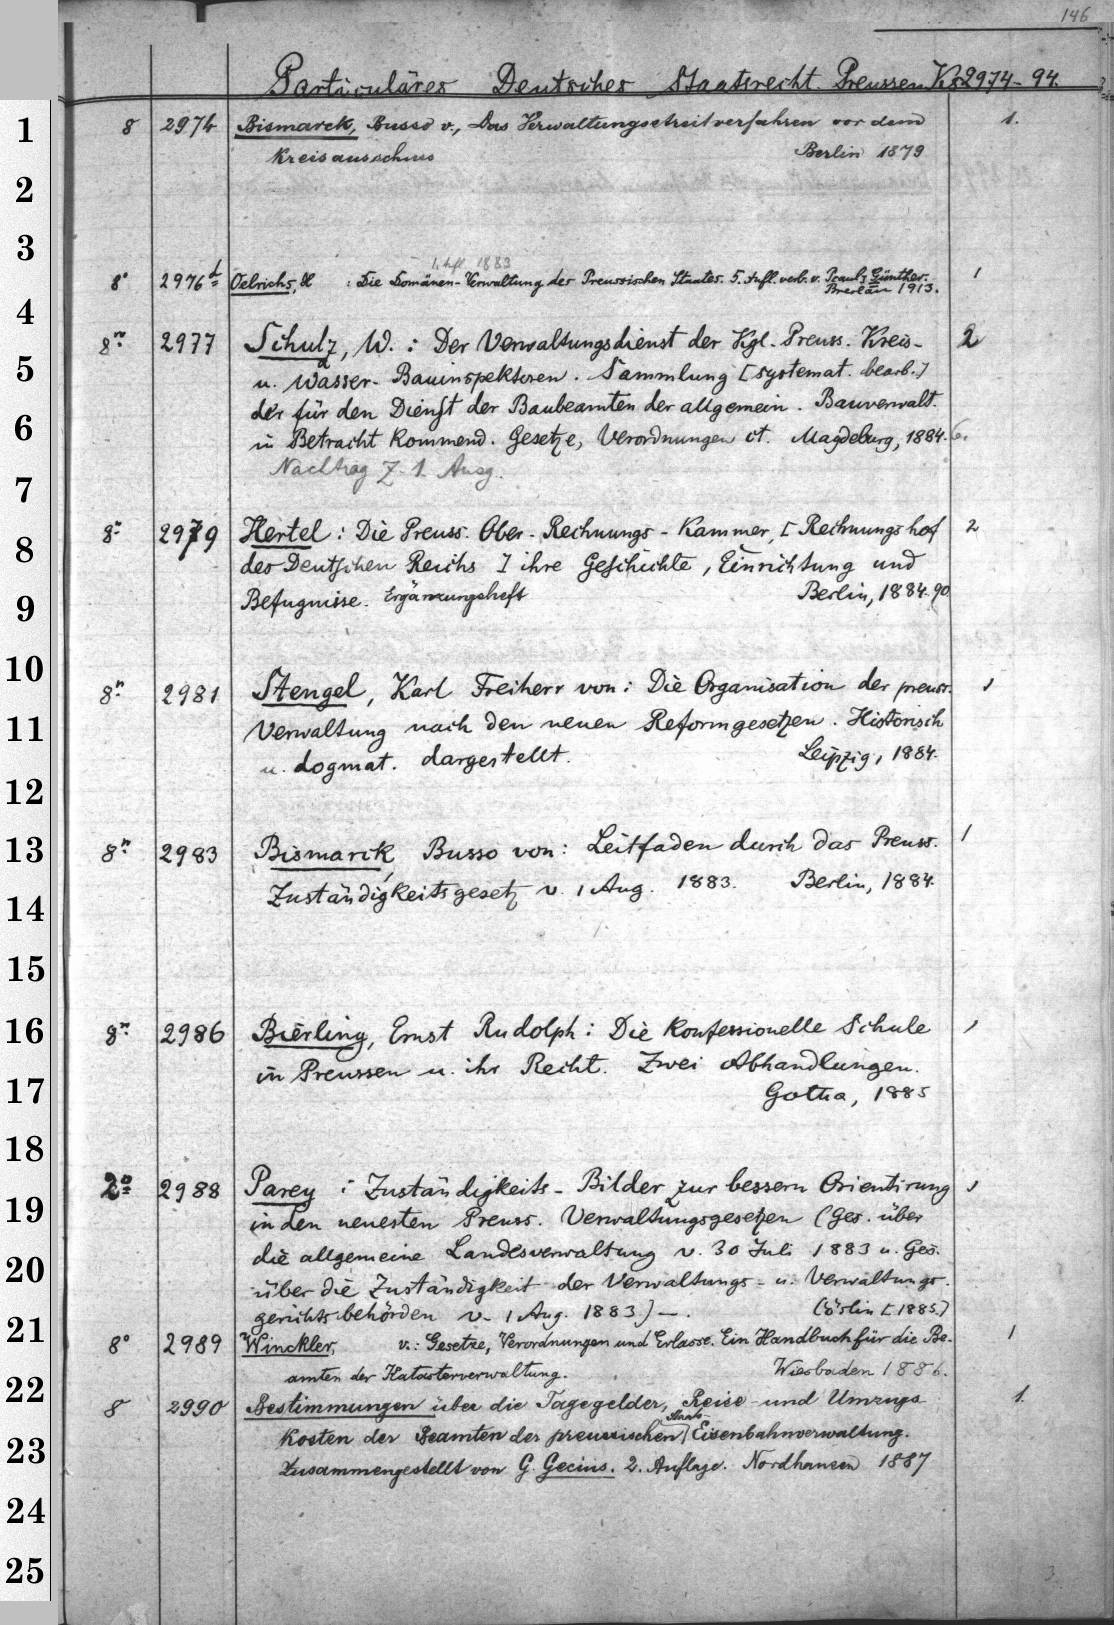 146
Particuläres Deutsches Staatsrecht. Preussen. Ks 2974-94.
1
2
3
4
5
6
7
8
9
10
11
12
13
14
15
16
17
18
19
20
21
22
23
24
25
8 2974 Bismarck, Busso v., Das Verwaltungsstreitverfahren vor dem 1.
Kreisausschuss Berlin 1879
1. Aufl. 1883
8° 2976d Oelrichs, H : Die Domänen-Verwaltung des Preussischen Staates. 5. Aufl. verb. v. Günther. 1
Breslau 1913.
8° 2977 Schulz, W. : Der Verwaltungsdienst der Kgl. Preuss. Kreis- 2
u. Wasser-Bauinspektoren. Sammlung [systemat. bearb.]
der für den Dienst der Baubeamten der allgemein. Bauverwalt.
in Betracht kommend. Gesetze, Verordnungen et. Magdeburg, 1884.
Nachtrag z. 1. Ausg.
8° 2979 Hertel : Die Preuss. Ober-Rechnungs-Kammer, [Rechnungshof 2
des Deutschen Reichs] ihre Geschichte, Einrichtung und
Befugnisse. Ergänzungsheft Berlin, 1884-90
8° 2981 Stengel, Karl Freiherr von : Die Organisation der preuss. 1
Verwaltung nach den neuen Reformgesetzen. Historisch
u. dogmat. dargestellt. Leipzig, 1884.
8° 2983 Bismarck, Busso von : Leitfaden durch das Preuss. 1
Zuständigkeitsgesetz v. 1 Aug. 1883. Berlin, 1884.
8° 2986 Bierling, Ernst Rudolph : Die konfessionelle Schule 1
in Preussen u. ihr Recht. Zwei Abhandlungen.
Gotha, 1885
2° 2988 Parey : Zuständigkeits-Bilder zur bessern Orientirung 1
in den neuesten Preuss. Verwaltungsgesetzen (Ges. über
die allgemeine Landesverwaltung v. 30 Juli 1883 u. Ges.
über die Zuständigkeit der Verwaltungs- u. Verwaltungs-
gerichtsbehörden v. 1 Aug. 1883) —. Cöslin [1885.]
8° 2989 Winckler, v. : Gesetze, Verordnungen und Erlasse. Ein Handbuch für die Be- 1
amten der Katasterverwaltung. Wiesbaden 1886.
8 2990 Bestimmungen über die Tagegelder, Reise- und Umzugs 1.
Staats-
kosten der Beamten der preussischen Eisenbahnverwaltung.
Zusammengestellt von G. Gecius. 2. Auflage. Nordhausen 1887